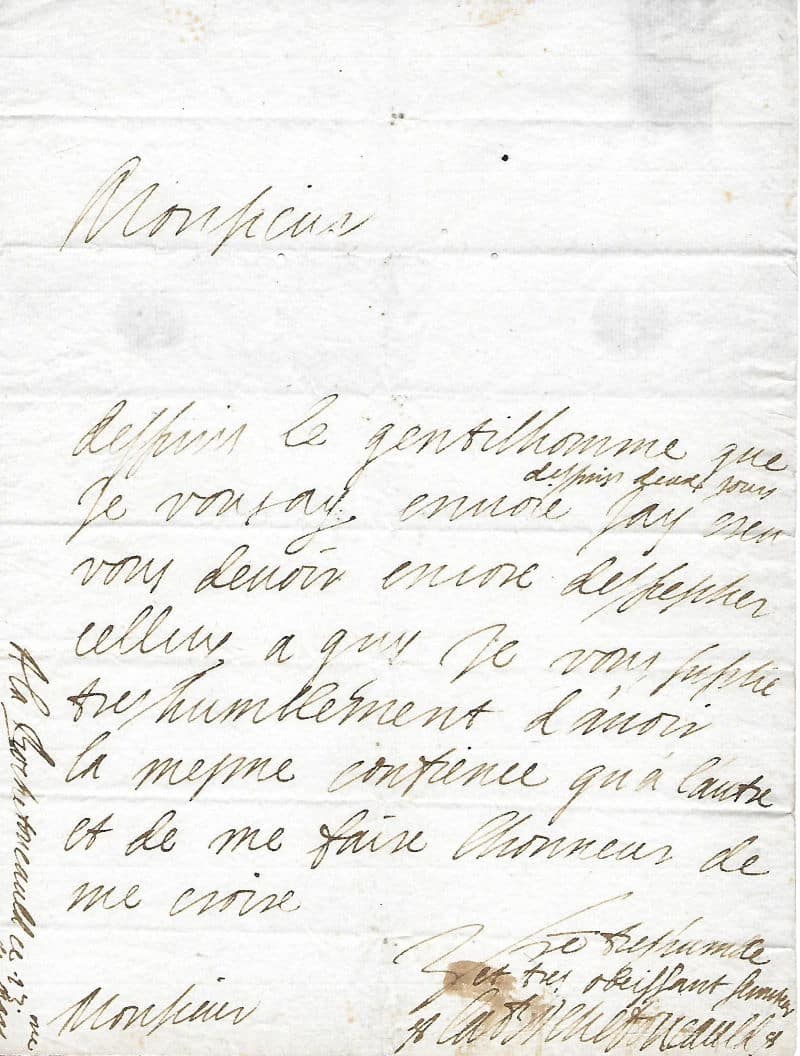 Monsieur
despuis le gentilhomme que
je vous ay envoié
despuis deux jours
jay creu
vous devoir encore despescher
celluy a quy je vous suplie
tres humblement d'avoir
la mesme confience qu'a l'autre
et de me faire lhonneur de
me croire
Monsieur
Vre tres humble
et tres obeissant serviteur
A la
ce 23 me